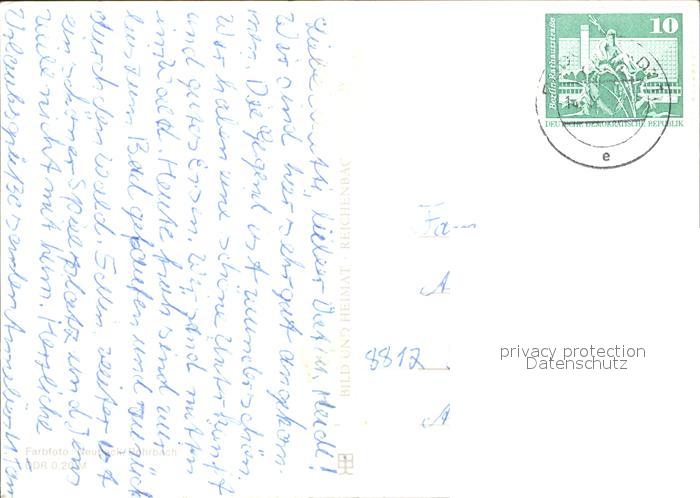 Liebe Mutti, lieber Vater, Heidi!
Wir sind hier sehr gut angekom-
men. Die Gegend ist wunderschön.
Wir haben eine schöne Unterkunft
und gutes Essen. Wir sind mitten
im Wald. Heute früh sind wir
bis zum Bad gelaufen und zurück
durch den Wald. Schön weiter ist
ein schöner Spielplatz und Jens
will nicht mit heim. Herzliche
Urlaubsgrüße senden
BILD UND HEIMAT · REICHENBAC
Farbfoto:
DDR 0.20 M
Berlin, Rathausstraße
10
DEUTSCHE DEMOKRATISCHE REPUBLIK
e
Fa
A
8812
A
privacy protection
Datenschutz